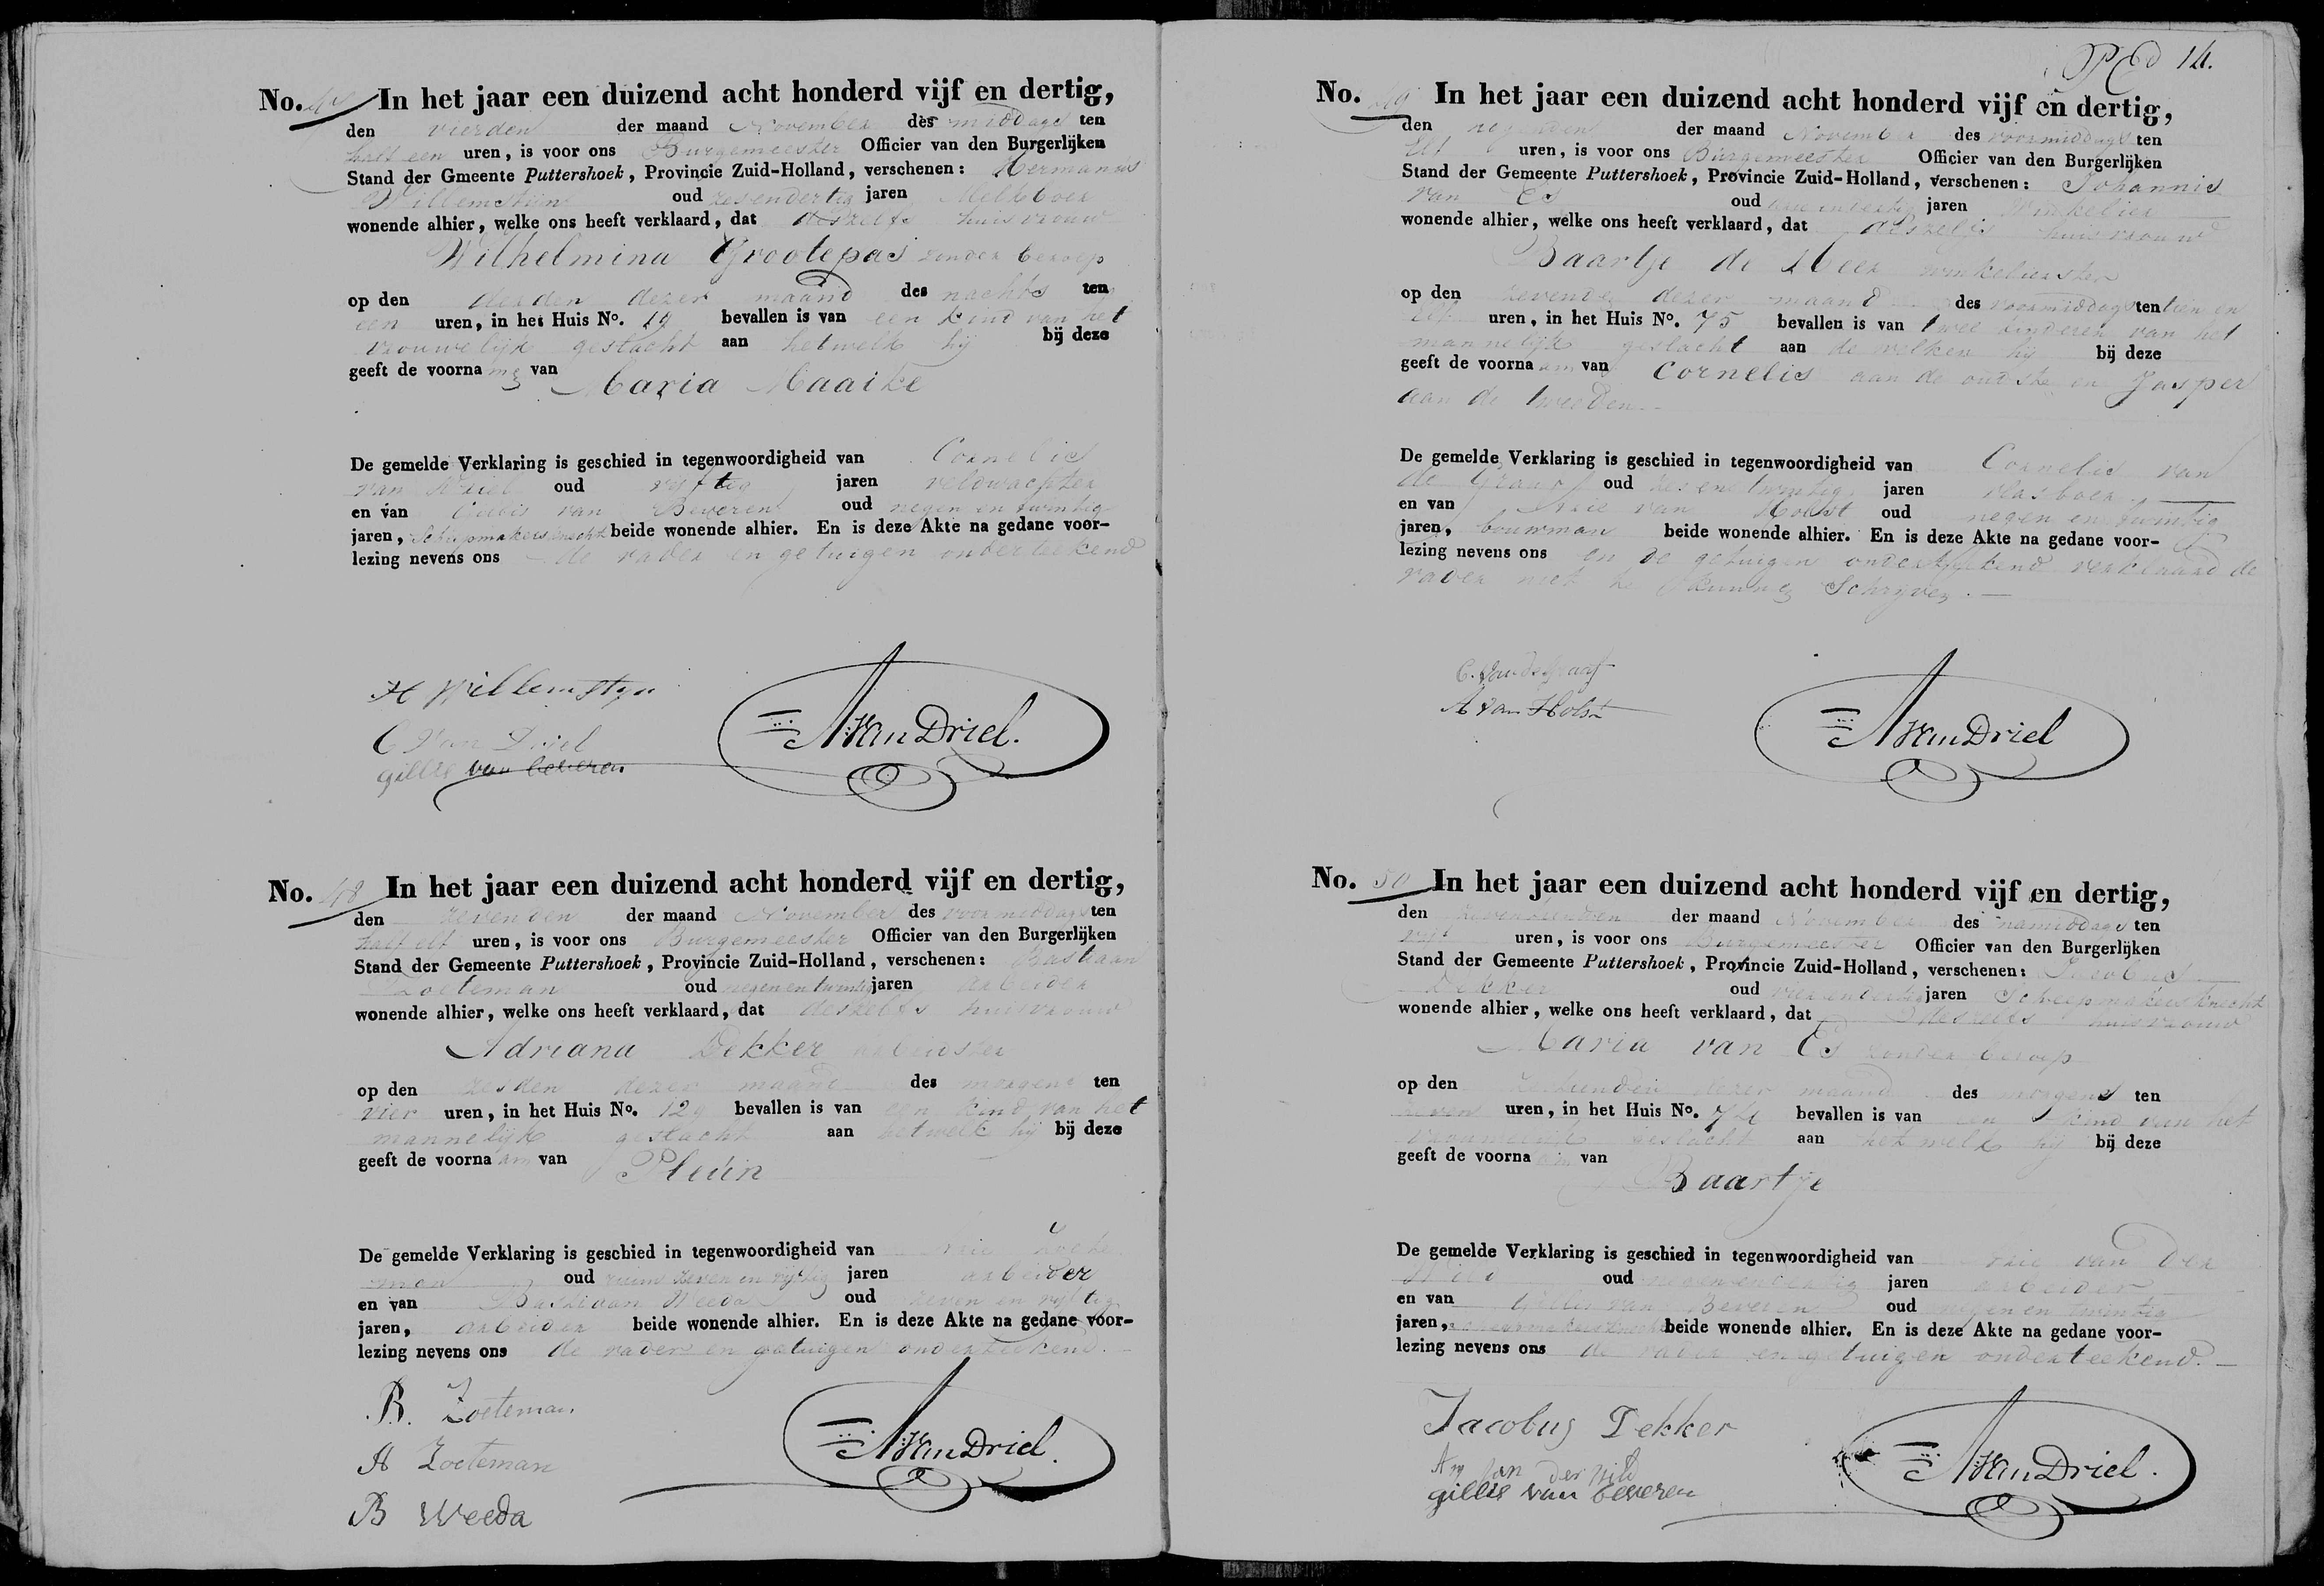 No. 47 In het jaar een duizend acht honderd vijf en dertig,
den vierden der maand November des middags ten
half een uren, is voor ons Burgemeester Officier van den Burgerlijken
Stand der Gmeente Puttershoek, Provincie Zuid-Holland, verschenen: Hermanus
Willemstijn oud zesendertig jaren Melkboer
wonende alhier, welke ons heeft verklaard, dat deszelfs huisvrouw
Wilhelmina Grootepas zonder beroep
op den derden dezer maand des nachts ten
een uren, in het Huis No. 19 bevallen is van een kind van het
vrouwelijk geslacht aan hetwelk hij bij deze
geeft de voorna me van
Maria Maaike
De gemelde Verklaring is geschied in tegenwoordigheid van Cornelis
van Driel oud vijftig jaren veldwachter
en van Gillis van Beveren oud negen en twintig
jaren, Scheepmakersknecht beide wonende alhier. En is deze Akte na gedane voor-
lezing nevens ons de vader en getuigen onderteekend
H Willemstyn
C Van Driel
gillis van beveren
A Van Driel.
No. 48 In het jaar een duizend acht honderd vijf en dertig,
den zevenden der maand November des voormiddags ten
half elf uren, is voor ons Burgemeester Officier van den Burgerlijken
Stand der Gemeente Puttershoek, Provincie Zuid-Holland, verschenen: Bastiaan
Zoeteman oud negen en twintig jaren arbeider
wonende alhier, welke ons heeft verklaard, dat deszelfs huisvrouw
Adriana Dekker arbeidster
op den zesden dezer maand des morgens ten
vier uren, in het Huis No. 129 bevallen is van een kind van het
mannelijk geslacht aan hetwelk hij bij deze
geeft de voorna am van
Pleun
De gemelde Verklaring is geschied in tegenwoordigheid van Arie Zoete
man oud ruim zeven en vijftig jaren arbeider
en van Bastiaan Weeda oud zeven en vijftig
jaren, arbeider beide wonende alhier. En is deze Akte na gedane voor-
lezing nevens ons de vader en getuigen onderteekend.
B. Zoeteman
A Zoeteman
B Weeda
A Van Driel.
14.
No. 49 In het jaar een duizend acht honderd vijf en dertig,
den negenden der maand November des voormiddags ten
Elf uren, is voor ons Burgemeester Officier van den Burgerlijken
Stand der Gemeente Puttershoek, Provincie Zuid-Holland, verschenen: Johannis
van Es oud jaren Winkelier
wonende alhier, welke ons heeft verklaard, dat deszelfs huisvrouw
Baartje de Meer winkelierster
op den zevende dezer maand des voormiddags ten tien en
Elf uren, in het Huis No. 75 bevallen is van twee kinderen van het
mannelijk geslacht aan de welken hij bij deze
geeft de voorna am van Cornelis aan de oudste en Jasper
aan de tweeden.
De gemelde Verklaring is geschied in tegenwoordigheid van Cornelis van
de Graaf oud zes en twintig jaren vlasboer
en van Arie van Holst oud negen en twintig
jaren, bouwman beide wonende alhier. En is deze Akte na gedane voor-
lezing nevens ons en de getuigen onderteekend verklaard de
vader niet te kunnen Schrijven.
C. van de Graaf
A van Holst
A Van Driel
No. 50 In het jaar een duizend acht honderd vijf en dertig,
den zeventienden der maand November des namiddags ten
vijf uren, is voor ons Burgemeester Officier van den Burgerlijken
Stand der Gemeente Puttershoek, Provincie Zuid-Holland, verschenen: Jacobus
Dekker oud vierendertig jaren Scheepmakers knecht
wonende alhier, welke ons heeft verklaard, dat deszelfs huisvrouw
Maria van Es zonder beroep
op den dezer maand des morgens ten
zeven uren, in het Huis No. 74 bevallen is van een kind van het
vrouwelijk geslacht aan hetwelk hij bij deze
geeft de voorna am van
Baartje
De gemelde Verklaring is geschied in tegenwoordigheid van Arie van der
Wild oud jaren arbeider
en van Gillis van Beveren oud negen en twintig
jaren, Scheepmakersknecht beide wonende alhier. En is deze Akte na gedane voor-
lezing nevens ons de vader en getuigen onderteekend.
Jacobus Dekker
Ary van der wild
gillis van beveren
A Van Driel.